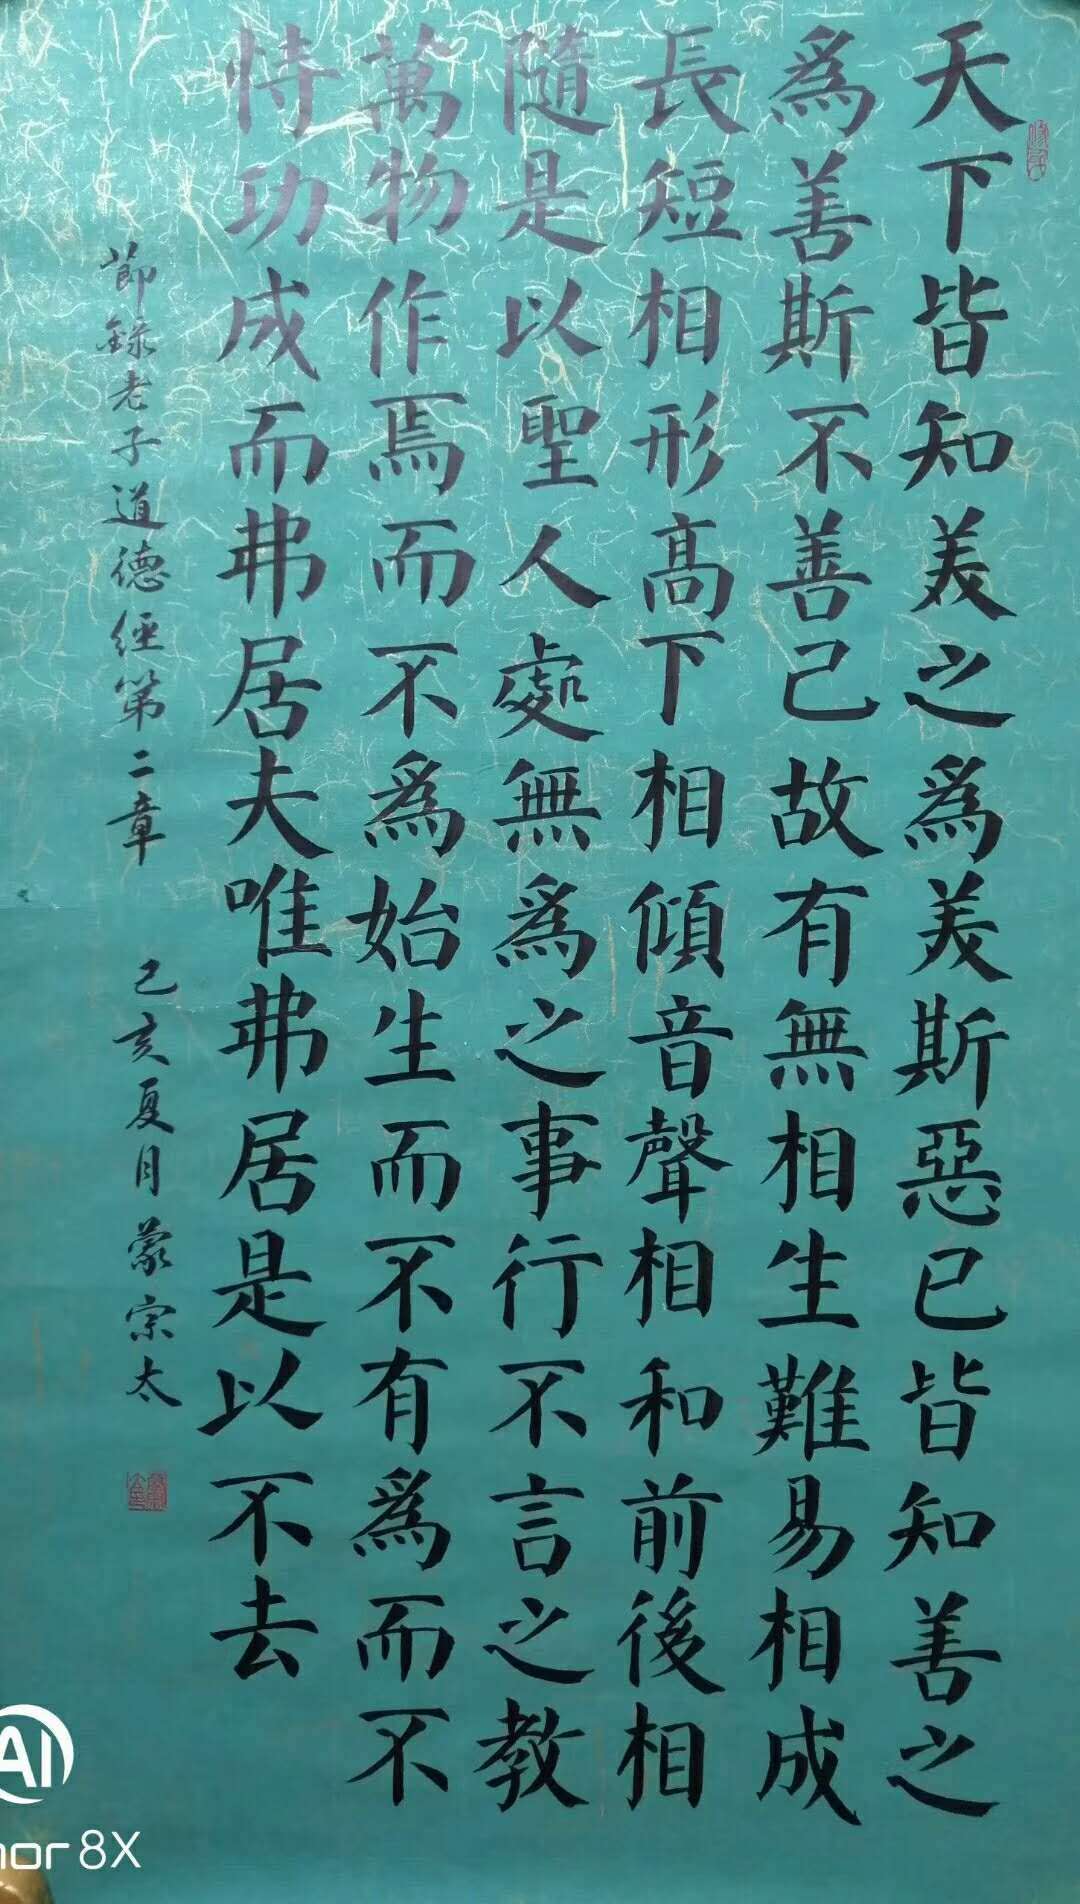 天下皆知美之爲美斯惡已皆知善之
爲善斯不善己故有無相生難易相成
長短相形高下相傾音聲相和前後相
隨是以聖人處無爲之事行不言之教
萬物作焉而不爲始生而不有爲而不
恃功成而弗居夫唯弗居是以不去
節錄老子道德經第二章 己亥夏月 蒙宗太
AI
nor 8X